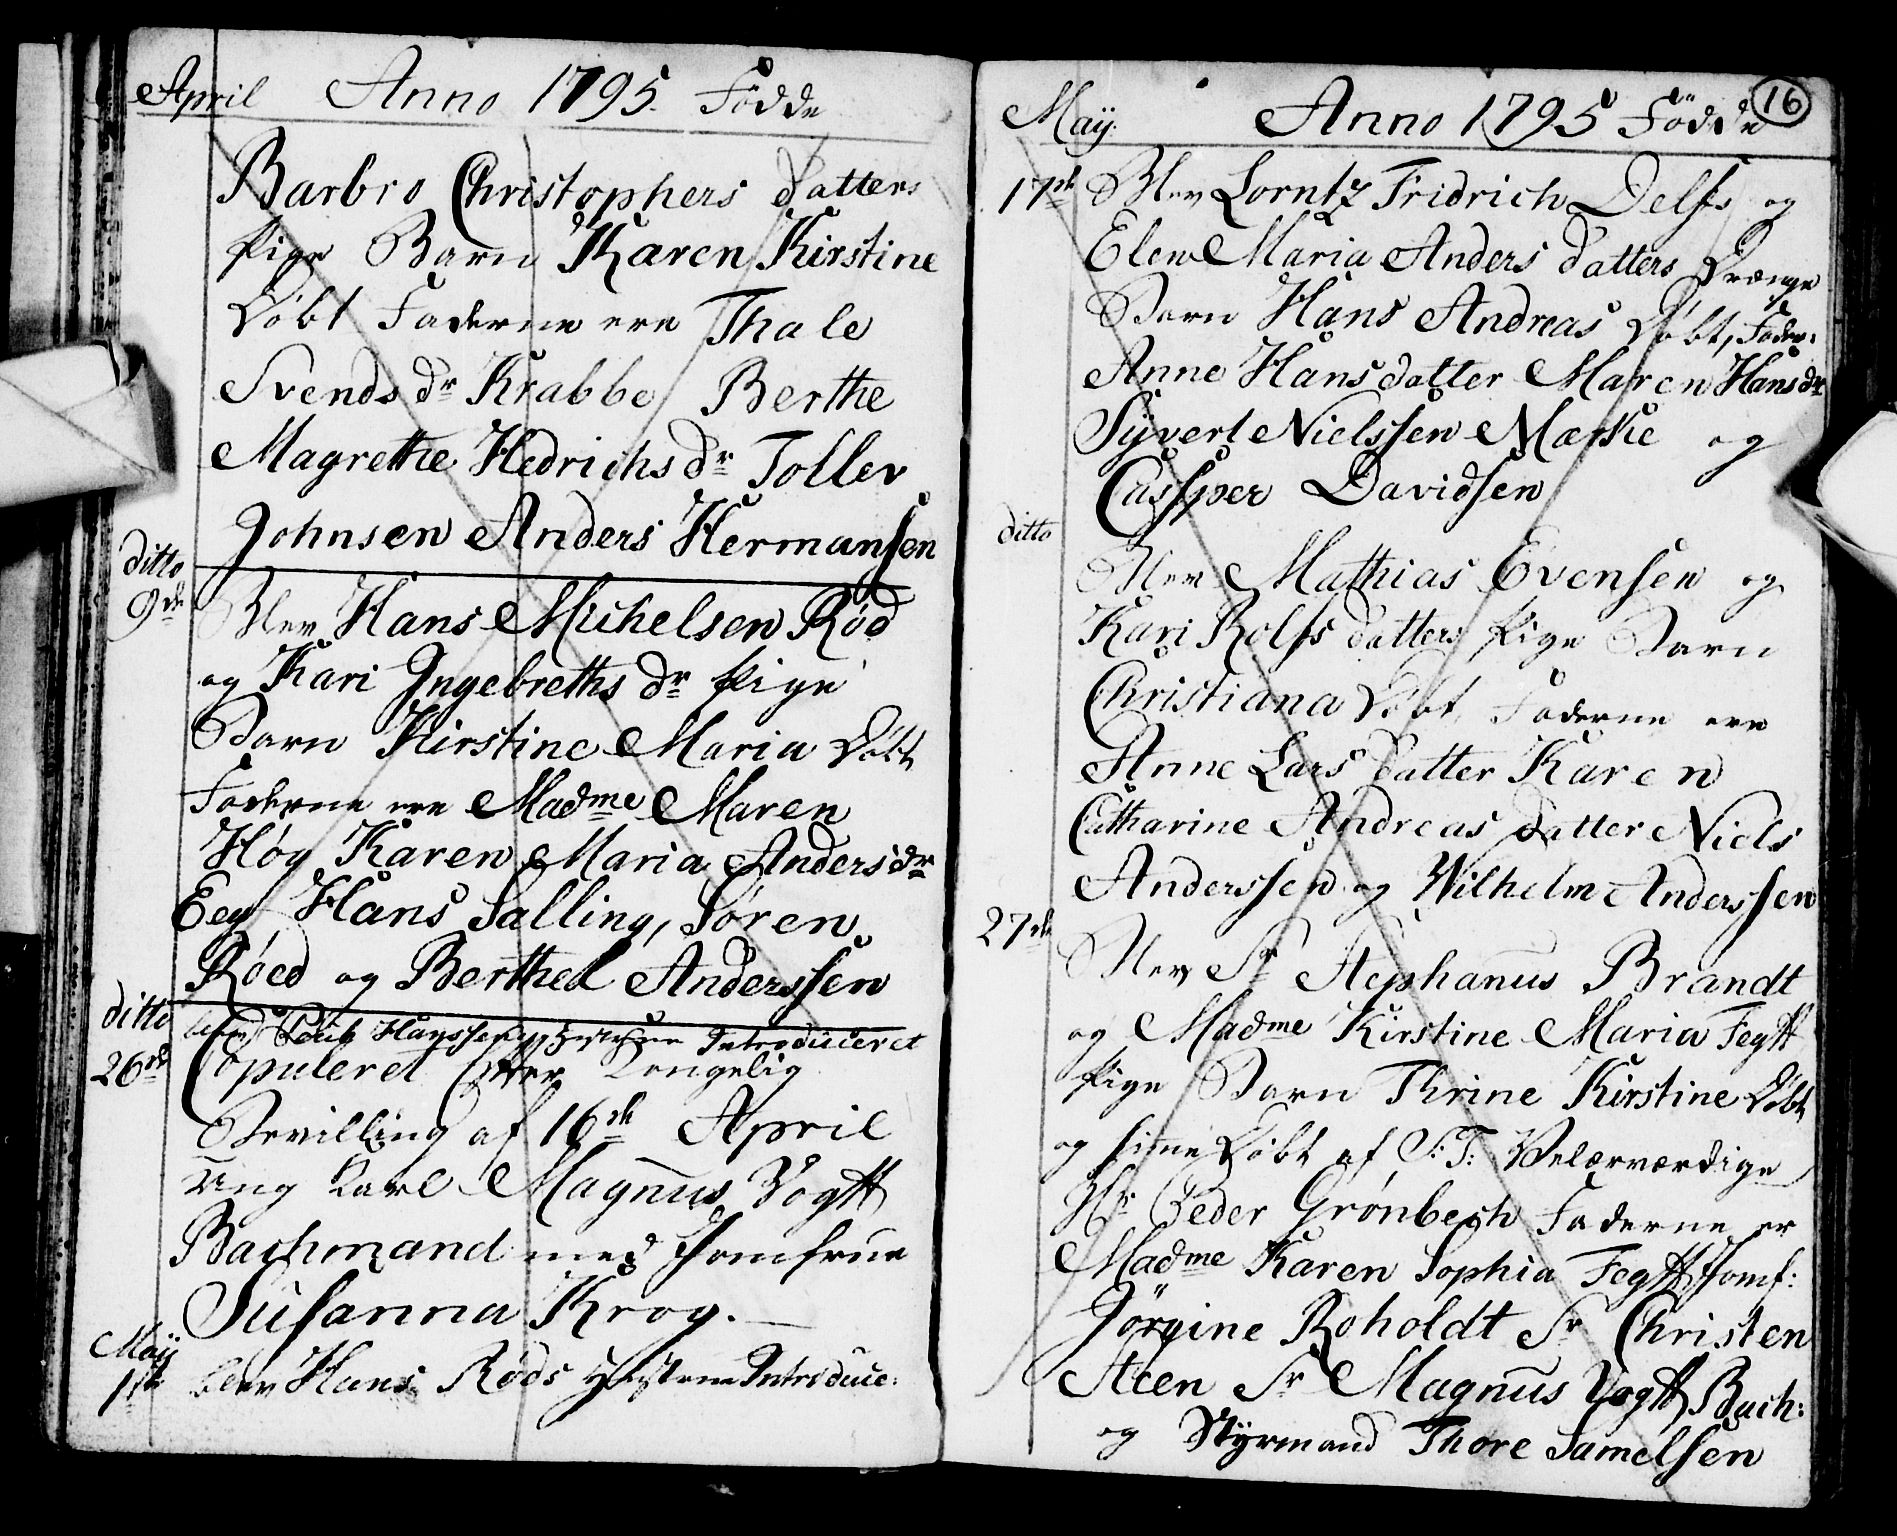 April Anno 1795. Födde
Barbro Christophers datters
Pige Barn Karen Kirstine
Döbt Faderne ere Thale
Svends dr Krabbe Berthe
Magrethe Hedrichs dr Tollev
Johnsen Anders Hermansen
ditto
9de Blev Hans Michelsen Röd
og Kari Ingebreths dr Pige
Barn Kirstine Maria Döbt
Faderne ere Madme Maren
Höy Karen Maria Anders dr
Eeg Hans Salling, Sören
Röed og Berthel Anderssen
ditto
blev Hanssen Introduceret
26de Copuleret efter Kongelig
Bevilling af 16de April
Ung Karl Magnus Vogtt
Bachmand med Jomfrue
Susanna Krog.
Maÿ
1ste blev Hans Röds Hustrue Introduce:
16
Maÿ Anno 1795 Födde
17de Blev Lorntz Fridrich Delfs og
Elen Maria Anders datters Drænge
Barn Hans Andreas Döbt, Fader:
Anne Hansdatter Maren Hansdr
Sÿvert Nielssen Mærke og
Cassper Davidsen
ditto
Blev Mathias Evensen og
Kari Rolfs datters Pige Barn
Christiana Döbt Faderne ere
Anne Lars datter Karen
Catharine Andreas datter Niels
Anderssen og Wilhelm Anderssen
27de Blev Sr Stephanus Brandt
og Madme Kirstine Maria Fegtt
Pige Barn Thrine Kirstine Döbt
og hime Döbt af S:T: Velærværdige
Hr Peder Grönbech Faderne er
Madme Karen Sophia Fegtt Jomf:
Jörgine Roholdt Sr Christen
Steen Sr Magnus Vogtt Bach:
og Stÿrmand Thore Samelsen